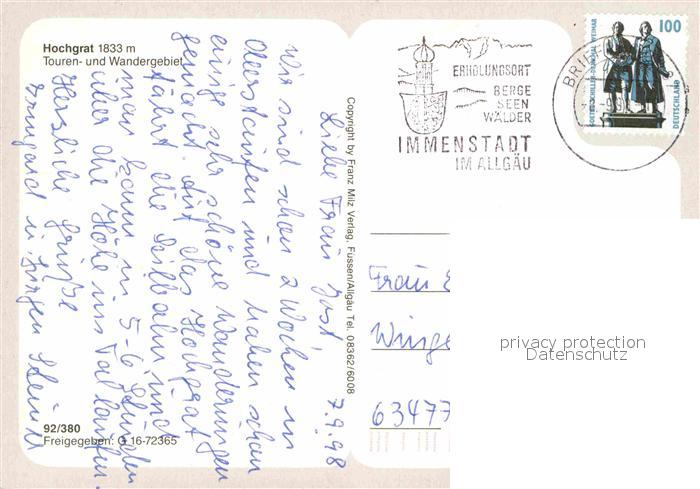 Hochgrat 1833 m
Touren- und Wandergebiet
7.9.98
Liebe Frau Jost
Wir sind schon 2 Wochen in
Oberstaufen und haben schon
einige sehr schöne Wanderungen
gemacht. Auf das Hochgrat
fährt die Seilbahn und
man kann in 5-6 Stunden
über die Höhe ins Tal laufen.
Herzliche Grüße
Irmgard u. Jürgen
92/380
Freigegeben: G 16-72365
Copyright by Franz Milz Verlag, Füssen/Allgäu Tel. 08362/6008
ERHOLUNGSORT
BERGE
SEEN
WÄLDER
IMMENSTADT
IM ALLGÄU
100
GOETHE-SCHILLER-DENKMAL WEIMAR
DEUTSCHLAND
Frau
63477
privacy protection
Datenschutz